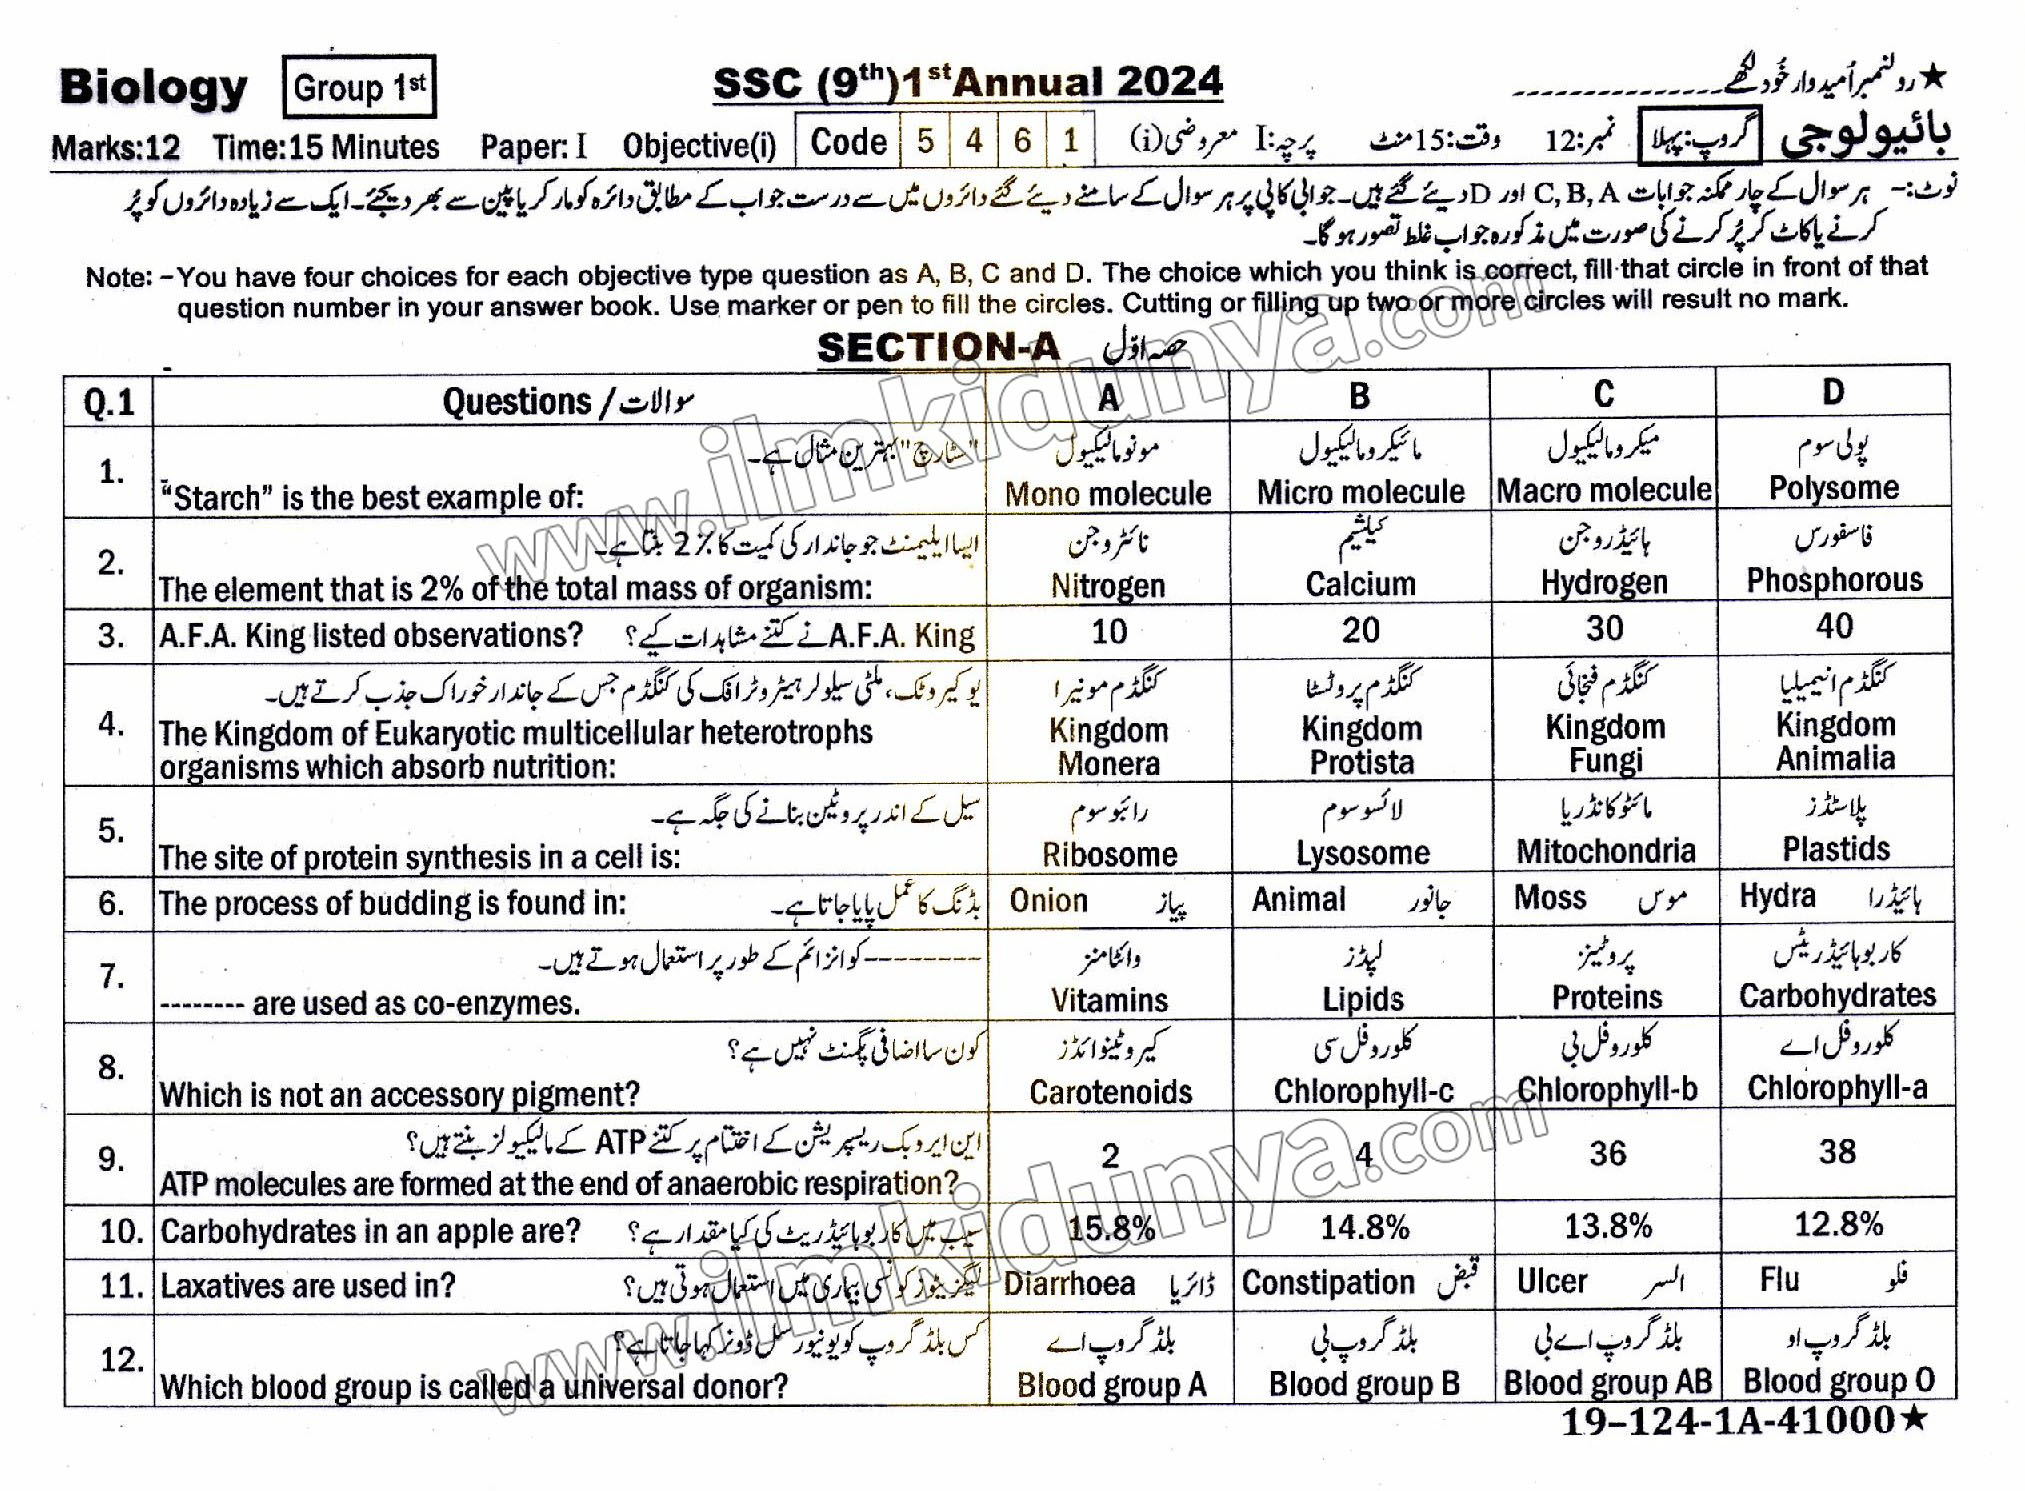 Biology Group 1st SSC (9th)1st Annual 2024 ★ رولنمبر اُمیدوار خُود لکھے ---------------
Marks:12 Time:15 Minutes Paper: I Objective(i) Code 5 4 6 1 بائیولوجی گروپ: پہلا نمبر: 12 وقت: 15 منٹ پرچہ: I معروضی (i)
نوٹ:- ہر سوال کے چار ممکنہ جوابات C, B, A اور D دیئے گئے ہیں۔ جوابی کاپی پر ہر سوال کے سامنے دیئے گئے دائروں میں سے درست جواب کے مطابق دائرہ کو مارکر یا پین سے بھر دیجئے۔ ایک سے زیادہ دائروں کو پُر
کرنے یا کاٹ کر پُر کرنے کی صورت میں مذکورہ جواب غلط تصور ہوگا۔
Note: -You have four choices for each objective type question as A, B, C and D. The choice which you think is correct, fill that circle in front of that
question number in your answer book. Use marker or pen to fill the circles. Cutting or filling up two or more circles will result no mark.
SECTION-A حصہ اوّل
Q.1 Questions / سوالات A B C D
1. "سٹارچ" بہترین مثال ہے۔ مونو مالیکیول مائیکرو مالیکیول میکرو مالیکیول پولی سوم
"Starch" is the best example of: Mono molecule Micro molecule Macro molecule Polysome
2. ایسا ایلیمنٹ جو جاندار کی کمیت کا 2% بناتا ہے۔ نائٹروجن کیلشیم ہائیڈروجن فاسفورس
The element that is 2% of the total mass of organism: Nitrogen Calcium Hydrogen Phosphorous
3. A.F.A. King listed observations? A.F.A. King نے کتنے مشاہدات کیے؟ 10 20 30 40
4. یوکیروٹک، ملٹی سیلولر ہیٹروٹرافک کی کنگڈم جس کے جاندار خوراک جذب کرتے ہیں۔ کنگڈم مونیرا کنگڈم پروٹسٹا کنگڈم فنجائی کنگڈم انیمیلیا
The Kingdom of Eukaryotic multicellular heterotrophs Kingdom Kingdom Kingdom Kingdom
organisms which absorb nutrition: Monera Protista Fungi Animalia
5. سیل کے اندر پروٹین بنانے کی جگہ ہے۔ رائبوسوم لائسوسوم مائٹوکانڈریا پلاسٹڈز
The site of protein synthesis in a cell is: Ribosome Lysosome Mitochondria Plastids
6. The process of budding is found in: بڈنگ کا عمل پایا جاتا ہے۔ Onion پیاز Animal جانور Moss موس Hydra ہائیڈرا
7. --------- کو انزائم کے طور پر استعمال ہوتے ہیں۔ وائٹامنز لپڈز پروٹینز کاربوہائیڈریٹس
-------- are used as co-enzymes. Vitamins Lipids Proteins Carbohydrates
8. کون سا اضافی پگمنٹ نہیں ہے؟ کیروٹینوائڈز کلوروفل سی کلوروفل بی کلوروفل اے
Which is not an accessory pigment? Carotenoids Chlorophyll-c Chlorophyll-b Chlorophyll-a
9. این ایروبک ریسپریشن کے اختتام پر کتنے ATP کے مالیکیولز بنتے ہیں؟ 2 4 36 38
ATP molecules are formed at the end of anaerobic respiration?
10. Carbohydrates in an apple are? سیب میں کاربوہائیڈریٹ کی کیا مقدار ہے؟ 15.8% 14.8% 13.8% 12.8%
11. Laxatives are used in? لیگزیٹوز کونسی بیماری میں استعمال ہوتی ہیں؟ Diarrhoea ڈائریا Constipation قبض Ulcer السر Flu فلو
12. کس بلڈ گروپ کو یونیورسل ڈونر کہا جاتا ہے؟ بلڈ گروپ اے بلڈ گروپ بی بلڈ گروپ اے بی بلڈ گروپ او
Which blood group is called a universal donor? Blood group A Blood group B Blood group AB Blood group O
19-124-1A-41000★
www.ilmkidunya.com
www.ilmkidunya.com